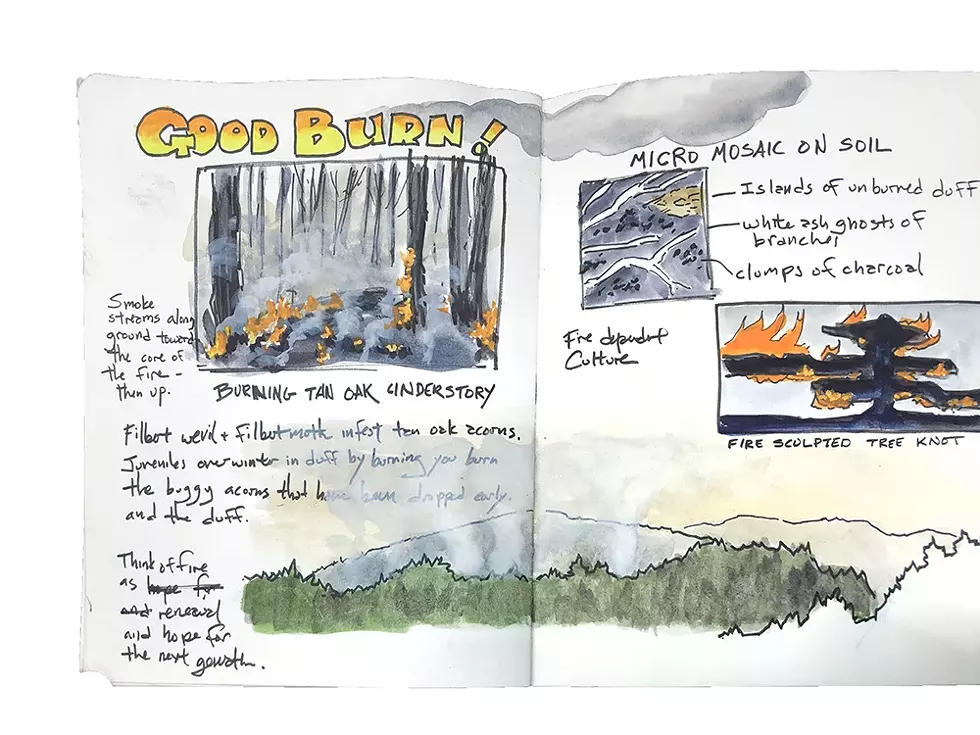 GOOD BURN!
Smoke
streams along
ground toward
the core of
the fire -
then up.
BURNING TAN OAK UNDERSTORY
Filbert wevil + Filbert moth infest tan oak acorns.
Juveniles overwinter in duff by burning you burn
the buggy acorns that have been dropped early.
and the duff.
Think of fire
as hope for
and renewal
and hope for
the next growth.
MICRO MOSAIC ON SOIL
Islands of unburned duff
white ash ghosts of
branches
clumps of charcoal
Fire dependent
Culture
FIRE SCULPTED TREE KNOT